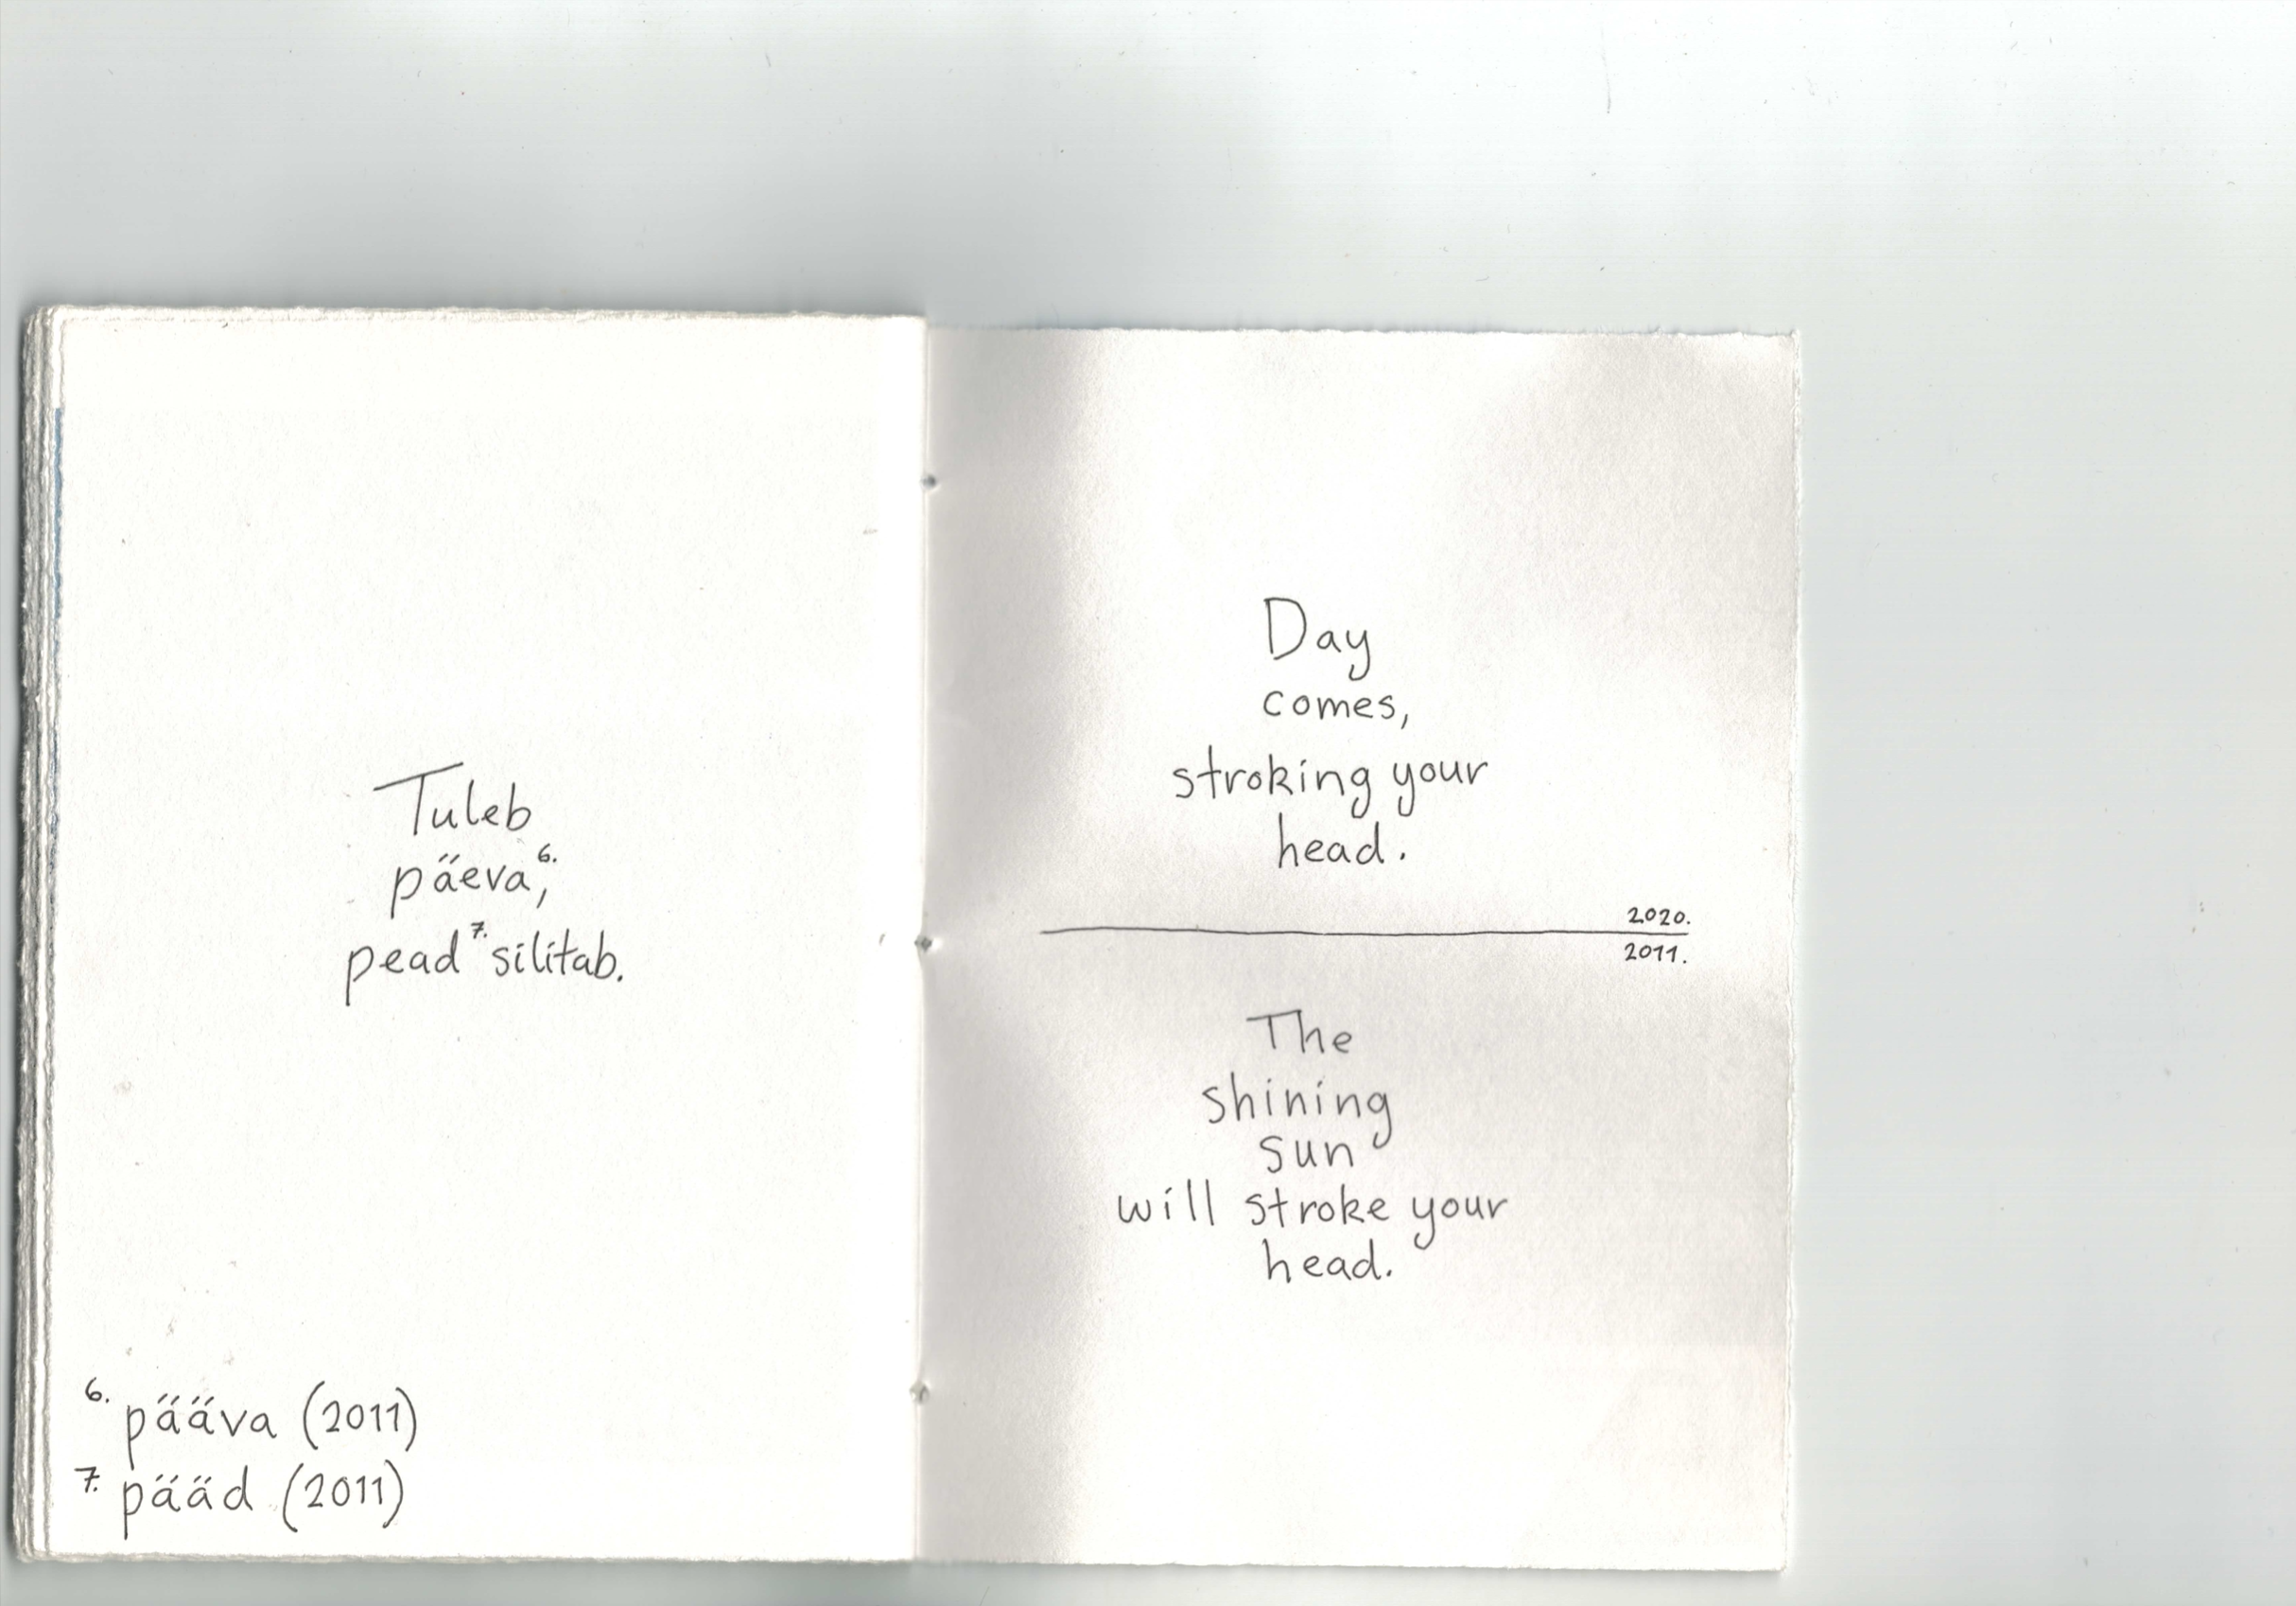 Tuleb
päeva,⁶·
pead⁷· silitab.
⁶· pääva (2011)
⁷· pääd (2011)
Day
comes,
stroking your
head.
2020.
2011.
The
shining
sun
will stroke your
head.